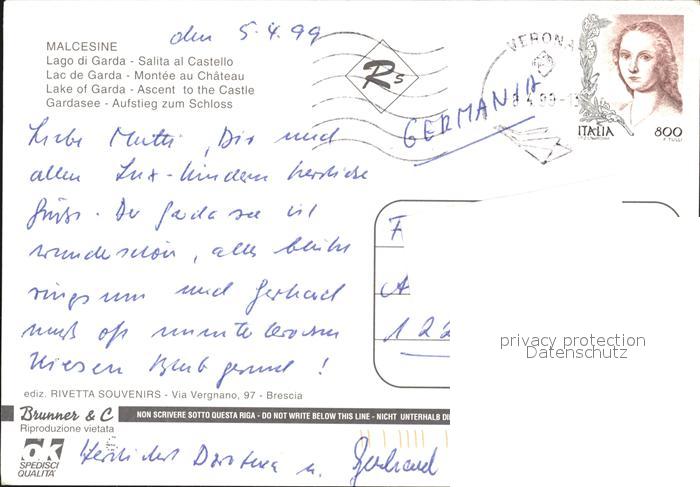 den 5.4.99
MALCESINE
Lago di Garda - Salita al Castello
Lac de Garda - Montée au Château
Lake of Garda - Ascent to the Castle
Gardasee - Aufstieg zum Schloss
Rs
VERONA
4.99-1
ITALIA 800
GERMANIA
Liebe Mutti, Dir und
allen Lux-Kindern herzliche
Grüße. Der Gardasee ist
wunderschön, alles blüht
rings um und Gerhard
muß oft
niesen Bleib gesund!
F
A
1 2 2
privacy protection
Datenschutz
ediz. RIVETTA SOUVENIRS - Via Vergnano, 97 - Brescia
Brunner & C
NON SCRIVERE SOTTO QUESTA RIGA - DO NOT WRITE BELOW THIS LINE - NICHT UNTERHALB DI
Riproduzione vietata
ok
SPEDISCI
QUALITÀ
Herzlichst Dorothea u. Gerhard